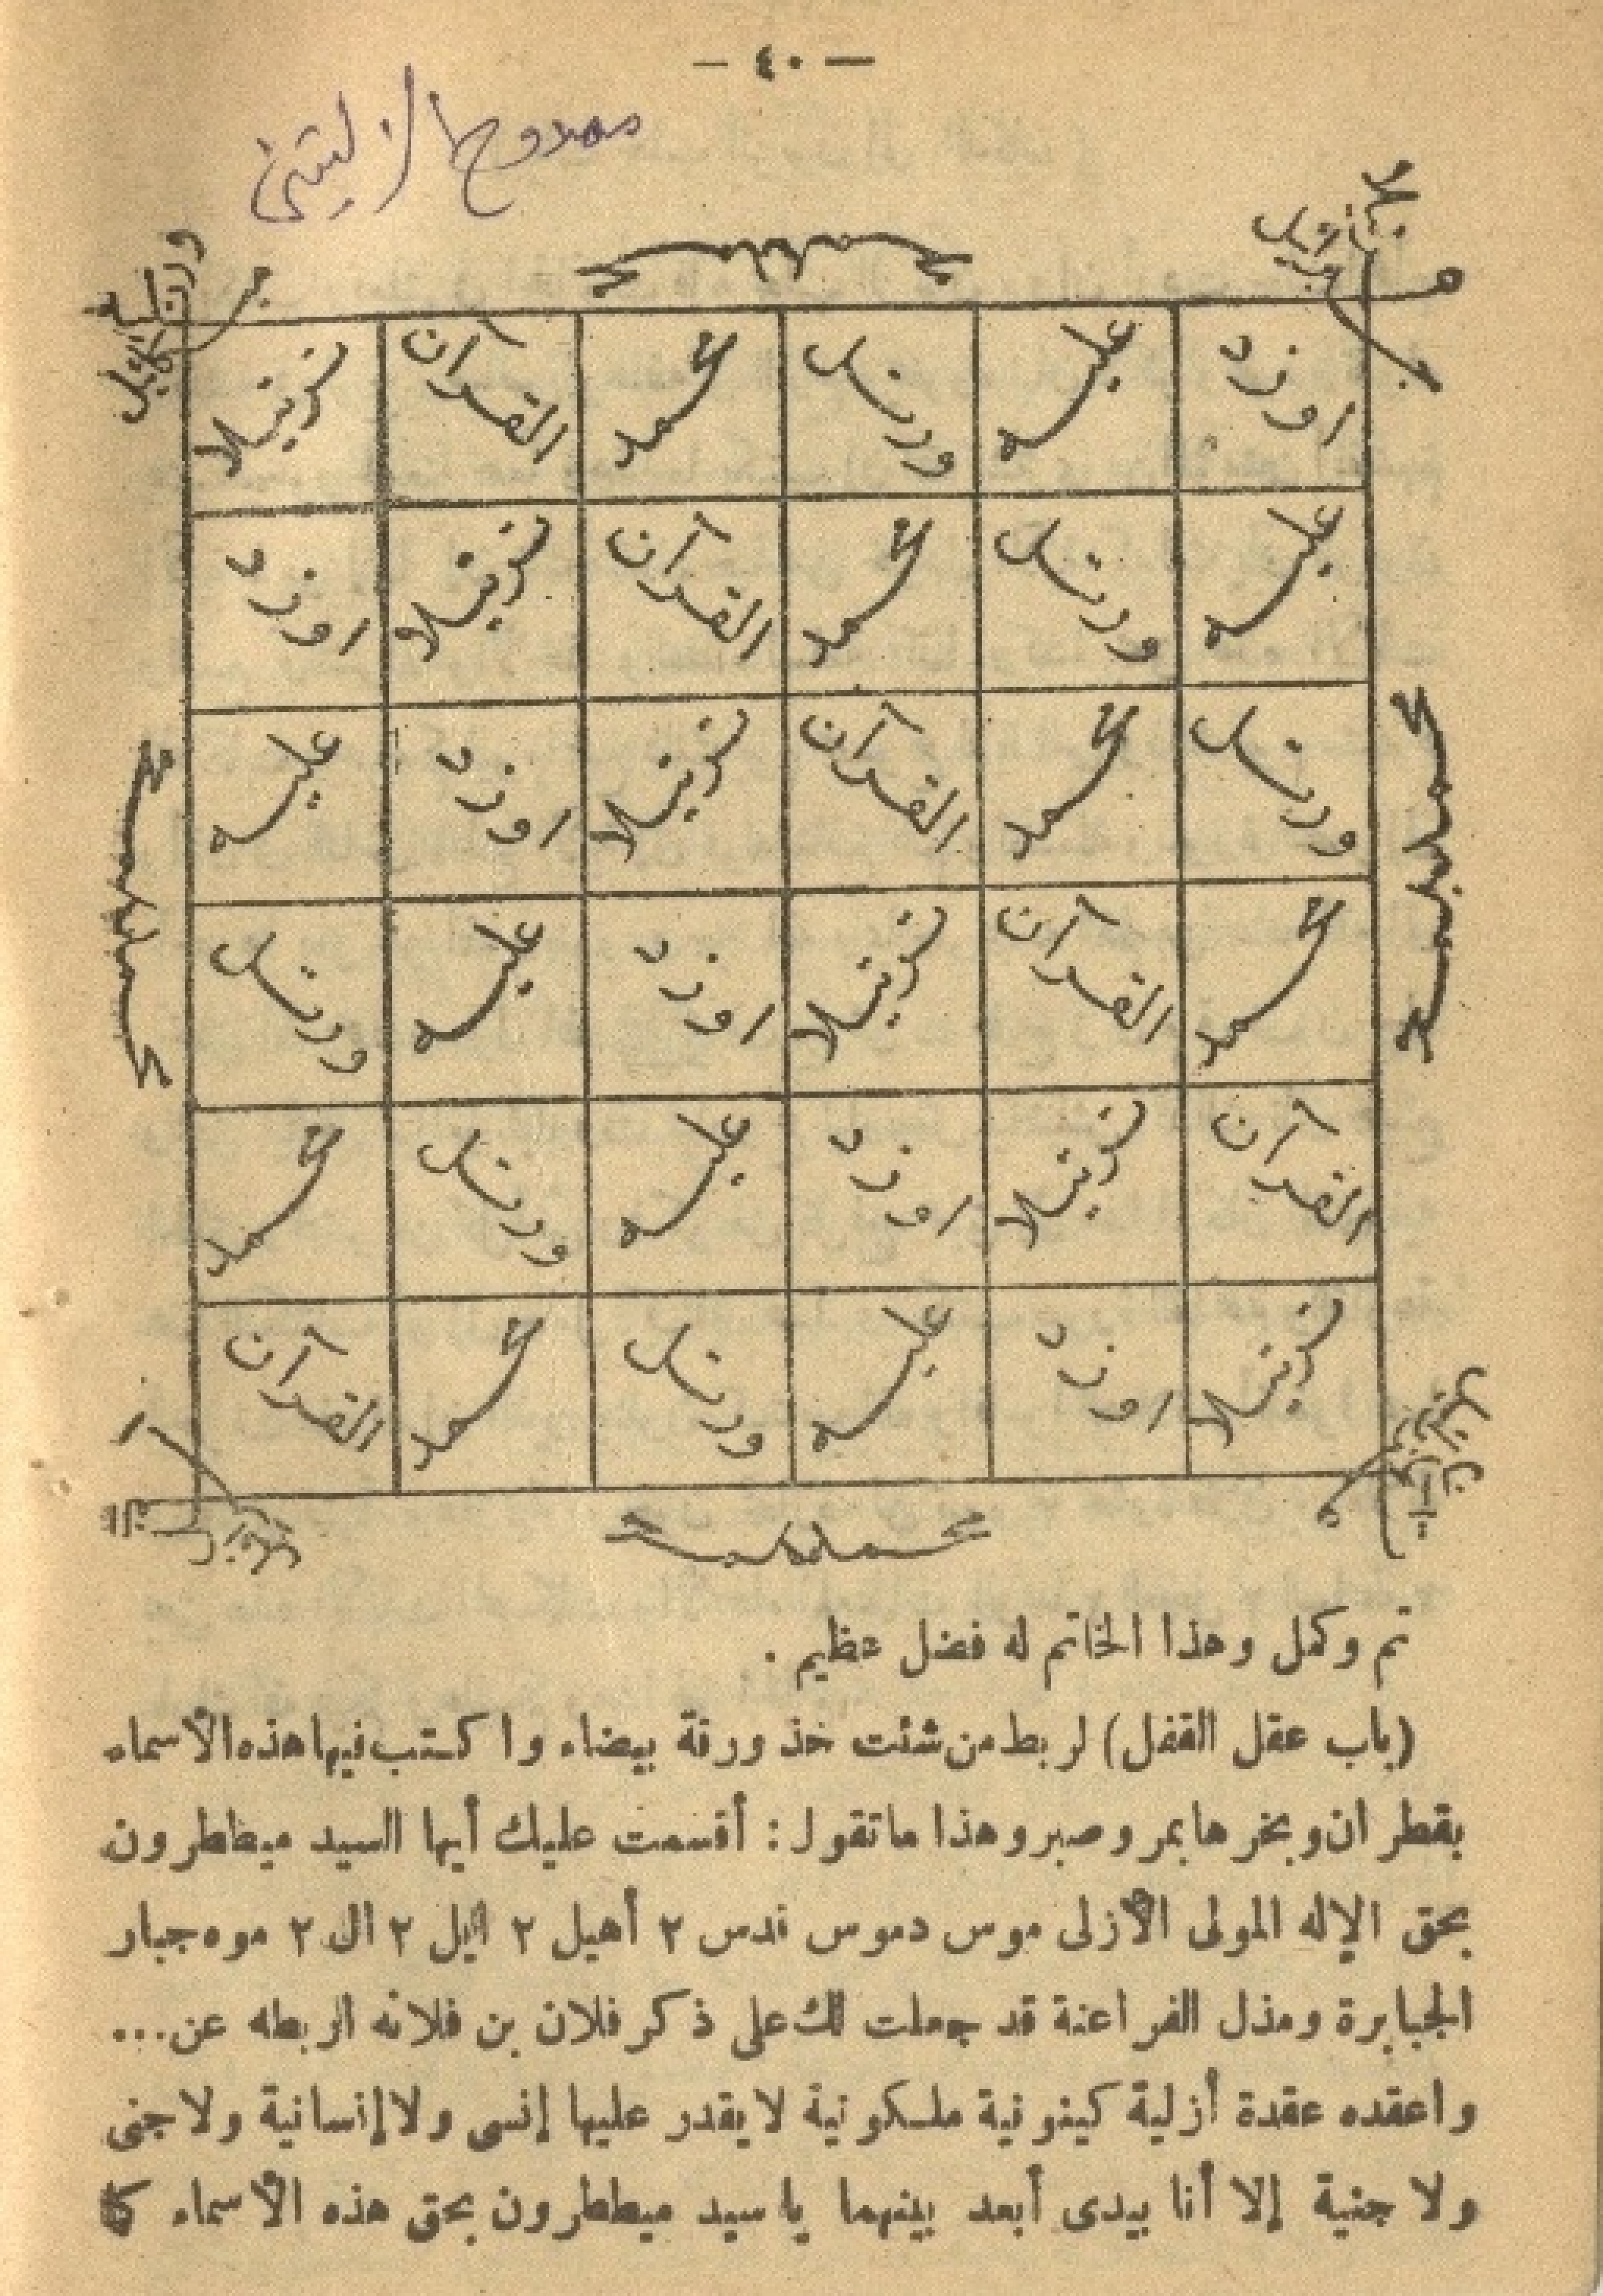 — ٤٠ —
ممدوح الزليتني
محمد
اوزد عليه ورتل محمد القرآن ترتيلا
عليه ورتل محمد القرآن ترتيلا اوزد
ورتل محمد القرآن ترتيلا اوزد عليه
محمد القرآن ترتيلا اوزد عليه ورتل
القرآن ترتيلا اوزد عليه ورتل محمد
ترتيلا اوزد عليه ورتل محمد القرآن
تم وكمل وهذا الخاتم له فضل عظيم .
(باب عقل القفل) لربط من شئت خذ ورقة بيضاء واكتب فيها هذه الأسماء
بقطران وبخرها بمر وصبر وهذا ما تقول : أقسمت عليك أيها السيد ميططرون
بحق الإله المولى الأزلى موس دموس ندس ٢ أهيل ٢ ايل ٢ ال ٢ موه جبار
الجبابرة ومذل الفراعنة قد جعلت لك على ذكر فلان بن فلانه اربطه عن...
واعقده عقدة أزلية كينونية ملكوتية لا يقدر عليها إنسى ولا إنسانية ولا جنى
ولا جنية إلا أنا بيدى أبعد بينهما يا سيد ميططرون بحق هذه الأسماء كا